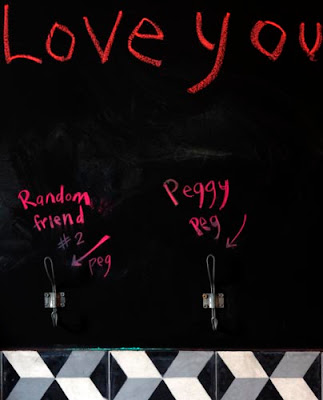 Love you
Random
friend
#2
peg
Peggy
Peg